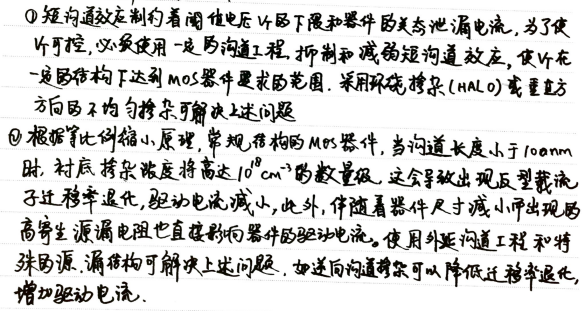 ①短沟道效应制约着阈值电压VT的下限和器件的关态泄漏电流,为了使
VT可控,必须使用一定的沟道工程,抑制和减弱短沟道效应,使VT在
一定的结构下达到MOS器件要求的范围.采用环绕掺杂(HALO)或垂直方
方向的不均匀掺杂可解决上述问题
②根据等比例缩小原理,常规结构的MOS器件,当沟道长度小于100nm
时,衬底掺杂浓度将高达10¹⁸cm⁻³的数量级,这会导致出现反型载流
子迁移率退化,驱动电流减小,此外,伴随着器件尺寸减小而出现的
高寄生源漏电阻也直接影响器件的驱动电流。使用外延沟道工程和特
殊的源.漏结构可解决上述问题.如逆向沟道掺杂可以降低迁移率退化,
增加驱动电流.